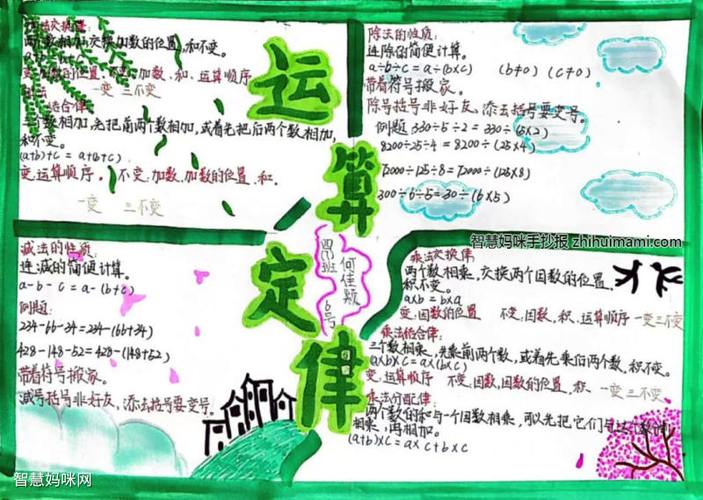 加法交换律:
两个数相加,交换加数的位置,和不变。
变:加数的位置 不变:加数、和、运算顺序
一变 三不变
结合律:
三个数相加,先把前两个数相加,或者先把后两个数相加,
和不变。
(a+b)+c = a+(b+c)
变:运算顺序。 不变:加数、加数的位置、和.
一变 三不变
除法的性质:
连除的简便计算。
a÷b÷c = a÷(b×c) (b≠0) (c≠0)
带着符号搬家。
除号括号非好友,添去括号要变号。
例题 330÷5÷2 = 330÷(5×2)
8200÷25÷4 = 8200÷(25×4)
72000÷125÷8 = 72000÷(125×8)
300÷6÷5=30÷(6×5)
智慧妈咪手抄报 zhihuimami.com
运
算
定
律
四班
何佳颖
6号
减法的性质:
连减的简便计算。
a-b-c = a-(b+c)
例题:
234-66-34=234-(66+34)
428-148-52=428-(148+52)
带着符号搬家。
减号括号非好友,添去括号要变号.
乘法交换律:
两个数相乘,交换两个因数的位置,
积不变。
a×b = b×a
变:因数的位置 不变:因数,积,运算顺序 一变三不变
乘法结合律:
三个数相乘,先乘前两个数,或者先乘后两个数,积不变。
(a×b)×c = a×(b×c)
变:运算顺序 不变:因数,因数的位置,积 一变三不变
乘法分配律:
两个数的和与一个因数相乘,可以先把它们与这个数分别
相乘,再相加。
(a+b)×c = a×c+b×c
智慧妈咪网